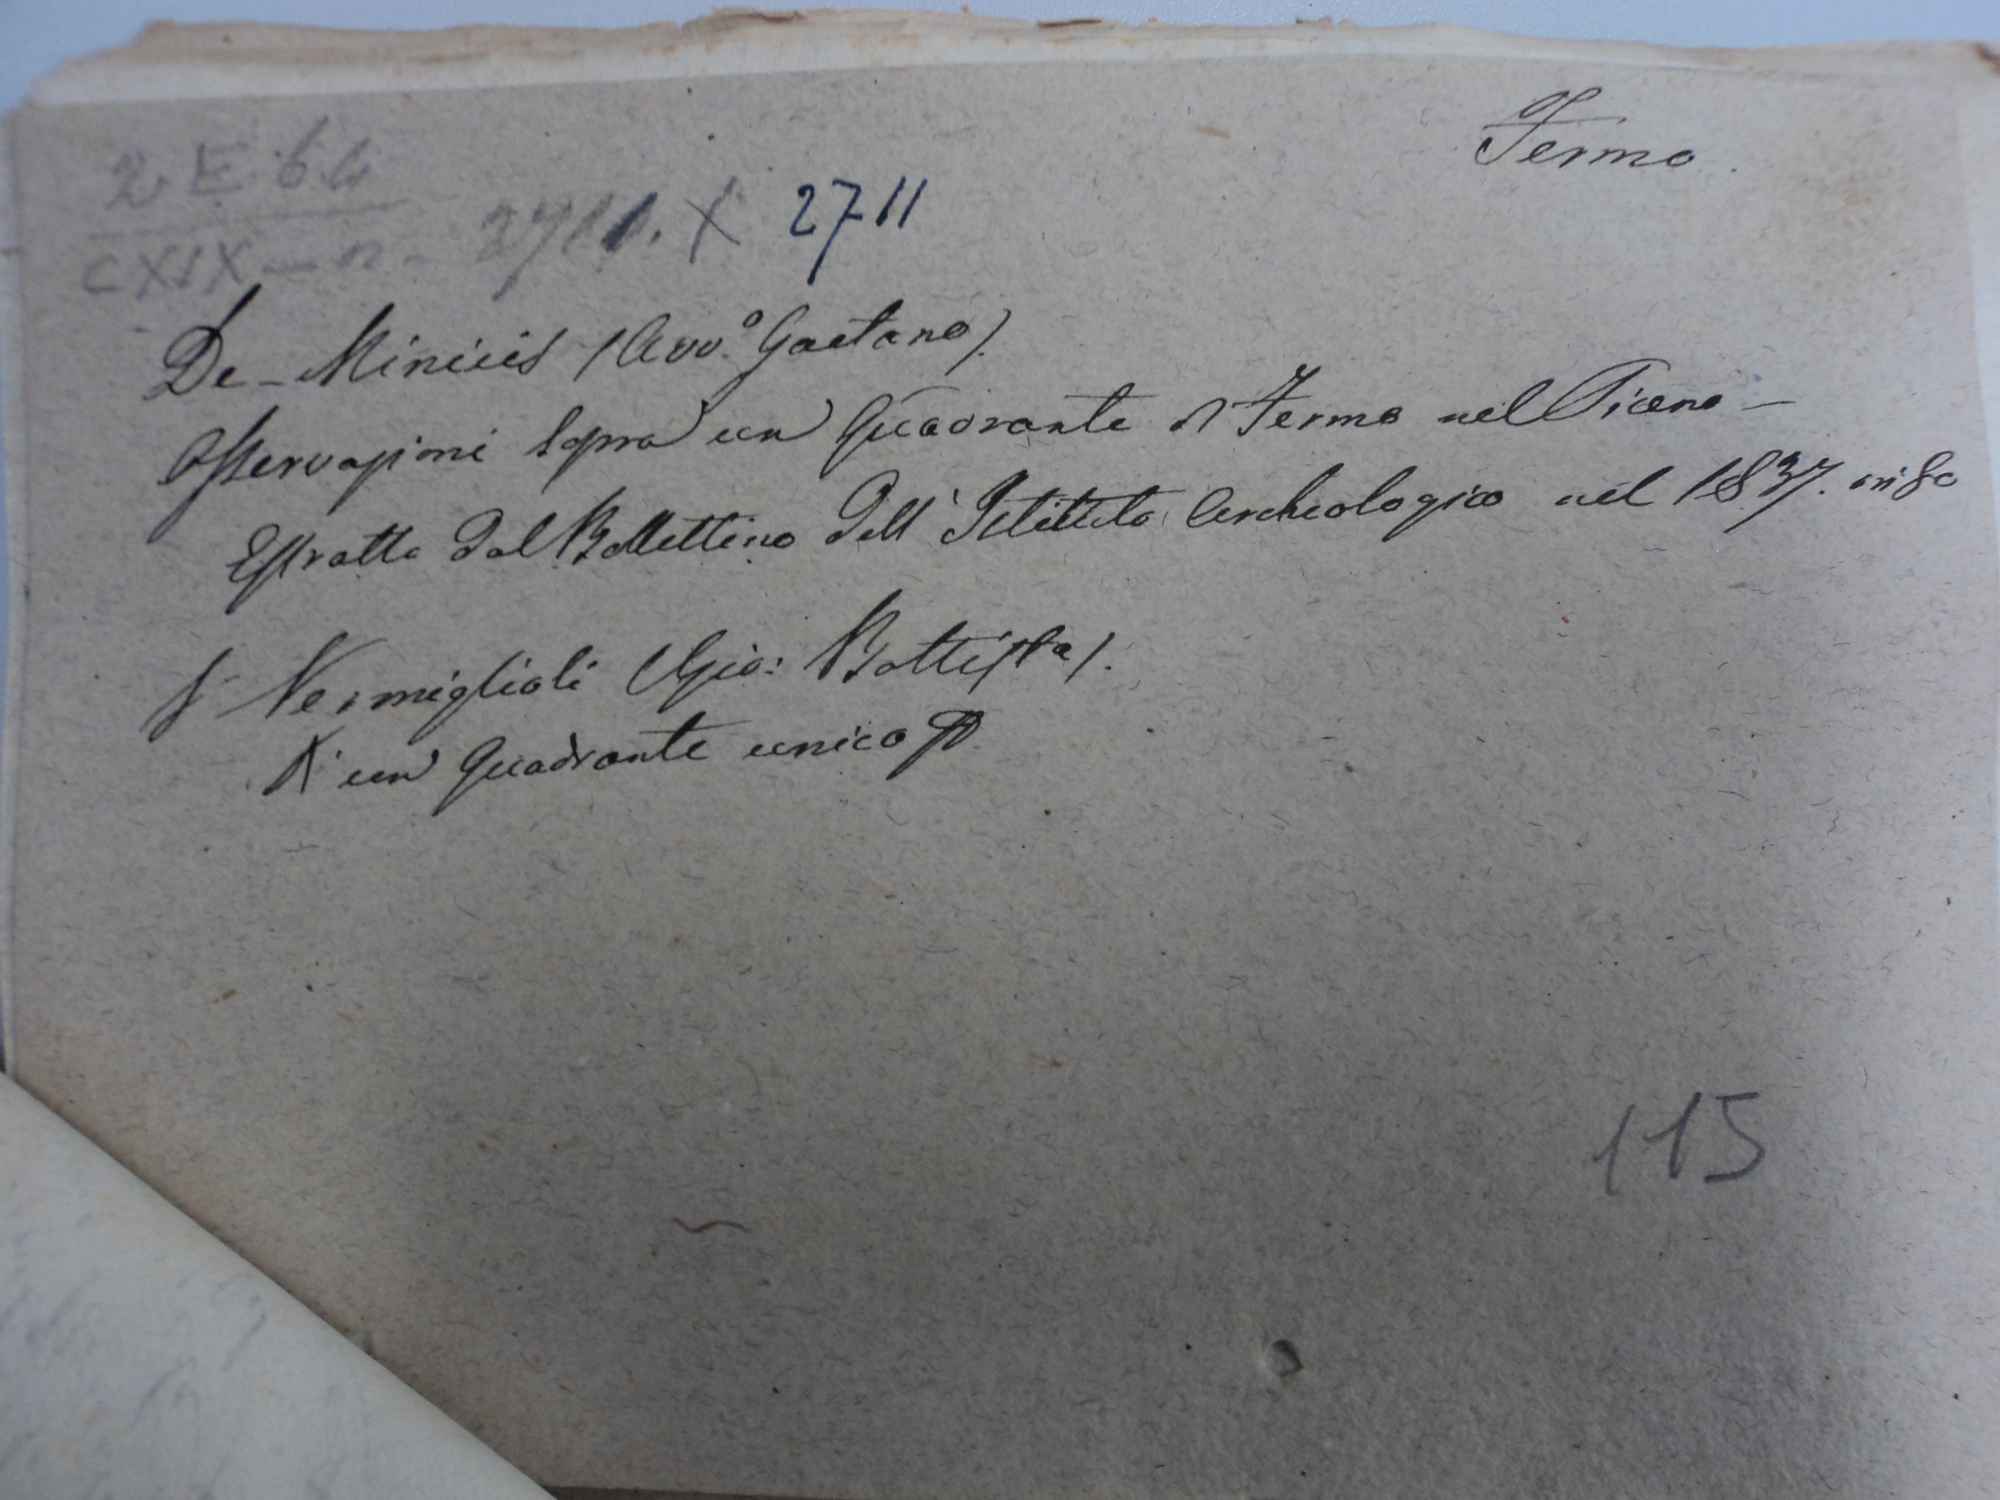 Fermo
2 E. 6.4
CXIX - n. 2711. X 2711
De-Minicis (Avv.º Gaetano).
Osservazioni sopra un Quadrante di Fermo nel Piceno -
Estratto dal Bollettino dell' Istituto Archeologico nel 1837. in 8º
Vermiglioli (Gio: Battista).
Di un Quadrante unico
115